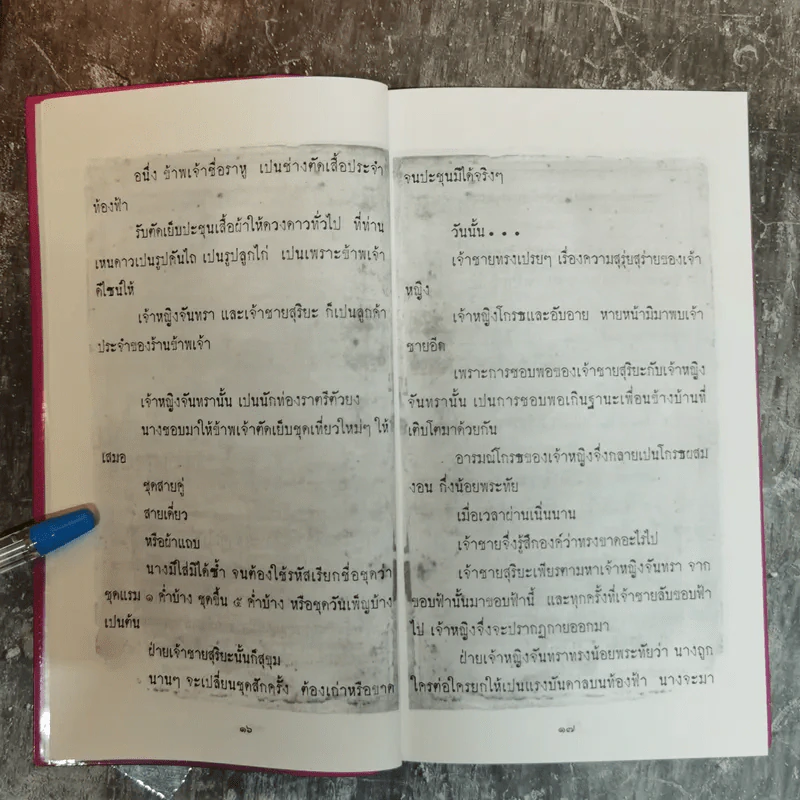 อนึ่ง ข้าพเจ้าชื่อราหู เปนช่างตัดเสื้อประจำ
ท้องฟ้า
รับตัดเย็บปะชุนเสื้อผ้าให้ดวงดาวทั่วไป ที่ท่าน
เหนดาวเปนรูปคันไถ เปนรูปลูกไก่ เปนเพราะข้าพเจ้า
ดีไซน์ให้
เจ้าหญิงจันทรา และเจ้าชายสุริยะ ก็เปนลูกค้า
ประจำของร้านข้าพเจ้า
เจ้าหญิงจันทรานั้น เปนนักท่องราตรีตัวยง
นางชอบมาให้ข้าพเจ้าตัดเย็บชุดเที่ยวใหม่ๆ ให้
เสมอ
ชุดสายคู่
สายเดี่ยว
หรือผ้าแถบ
นางมิใส่มิได้ซ้ำ จนต้องใช้รหัสเรียกชื่อชุดว่า
ชุดแรม ๑ ค่ำบ้าง ชุดขึ้น ๕ ค่ำบ้าง หรือชุดวันเพ็ญบ้าง
เปนต้น
ฝ่ายเจ้าชายสุริยะนั้นก็สุขุม
นานๆ จะเปลี่ยนชุดสักครั้ง ต้องเก่าหรือขาด
๑๖
จนปะชุนมิได้จริงๆ
วันนั้น...
เจ้าชายทรงเปรยๆ เรื่องความสุรุยสุร่ายของเจ้า
หญิง
เจ้าหญิงโกรธและอับอาย หายหน้ามิมาพบเจ้า
ชายอีก
เพราะการชอบพอของเจ้าชายสุริยะกับเจ้าหญิง
จันทรานั้น เปนการชอบพอเกินฐานะเพื่อนข้างบ้านที่
เติบโตมาด้วยกัน
อารมณ์โกรธของเจ้าหญิงจึ่งกลายเปนโกรธผสม
งอน กึ่งน้อยพระทัย
เมื่อเวลาผ่านเนิ่นนาน
เจ้าชายจึ่งรู้สึกองค์ว่าทรงขาดอะไรไป
เจ้าชายสุริยะเพียรตามหาเจ้าหญิงจันทรา จาก
ขอบฟ้านั้นมาขอบฟ้านี้ และทุกครั้งที่เจ้าชายลับขอบฟ้า
ไป เจ้าหญิงจึ่งจะปรากฏกายออกมา
ฝ่ายเจ้าหญิงจันทราทรงน้อยพระทัยว่า นางถูก
ใครต่อใครยกให้เปนแรงบันดาลบนท้องฟ้า นางจะมา
๑๗